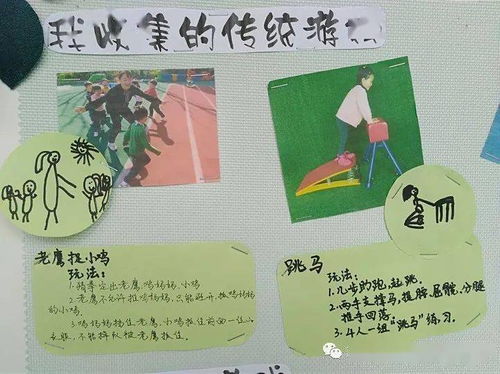 我收集的传统游
老鹰捉小鸡
玩法:
1.猜拳定出老鹰、鸡妈妈、小鸡
2.老鹰不允许推鸡妈妈,只能避开,捉鸡妈妈
的小鸡.
3.鸡妈妈拦住老鹰,小鸡拉住前面一位小
衣服,不能掉队被老鹰捉住.
跳马
玩法:
1.几步助跑,起跳.
2.两手支撑马,提臀、屈髋、分腿
推手回落
3.4人一组"跳马"练习.